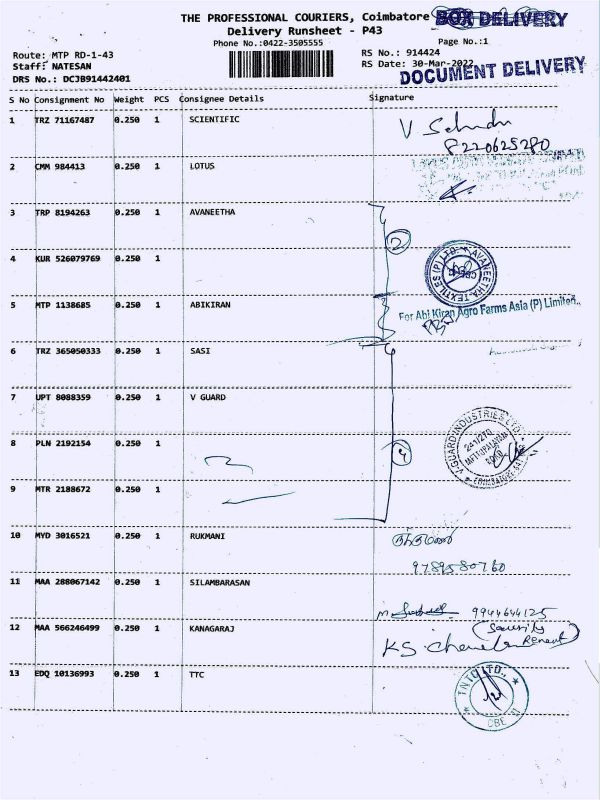 THE PROFESSIONAL COURIERS, Coimbatore
BOX DELIVERY
Delivery Runsheet - P43
Phone No.:0422-3505555
Page No.:1
Route: MTP RD-1-43
RS No.: 914424
Staff: NATESAN
RS Date: 30-Mar-2022
DRS No.: DCJB91442401
DOCUMENT DELIVERY
S No Consignment No Weight PCS Consignee Details Signature
1 TRZ 71167487 0.250 1 SCIENTIFIC
8220625280
2 CMM 984413 0.250 1 LOTUS
3 TRP 8194263 0.250 1 AVANEETHA
2
4 KUR 526079769 0.250 1
AVANEETHA TEXTILES (P) LTD.
5 MTP 1138685 0.250 1 ABIKIRAN
For Abi Kiran Agro Farms Asia (P) Limited.,
6 TRZ 365050333 0.250 1 SASI
7 UPT 8088359 0.250 1 V GUARD
V-GUARD INDUSTRIES LTD
8 PLN 2192154 0.250 1
4
9 MTR 2188672 0.250 1
10 MYD 3016521 0.250 1 RUKMANI
9789580760
11 MAA 288067142 0.250 1 SILAMBARASAN
9944644125
12 MAA 566246499 0.250 1 KANAGARAJ
13 EDQ 10136993 0.250 1 TTC
CBE